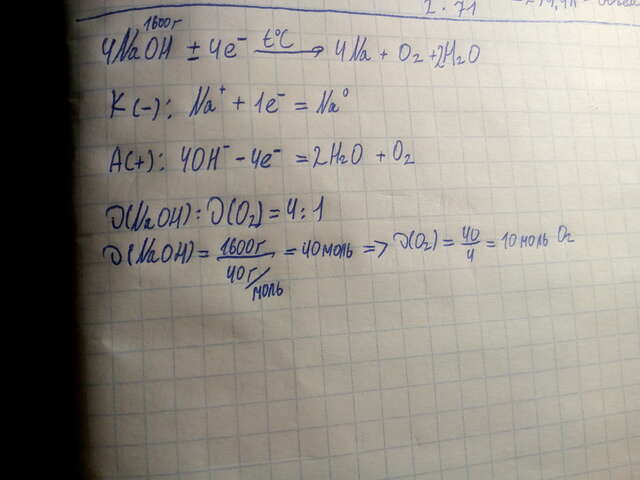 2 · 71
1600г
4NaOH ± 4e⁻ —t°C→ 4Na + O₂ + 2H₂O
K(-): Na⁺ + 1e⁻ = Na⁰
A(+): 4OH⁻ - 4e⁻ = 2H₂O + O₂
ϑ(NaOH) : ϑ(O₂) = 4 : 1
ϑ(NaOH) = 1600г / 40г/моль = 40моль => ϑ(O₂) = 40/4 = 10моль O₂